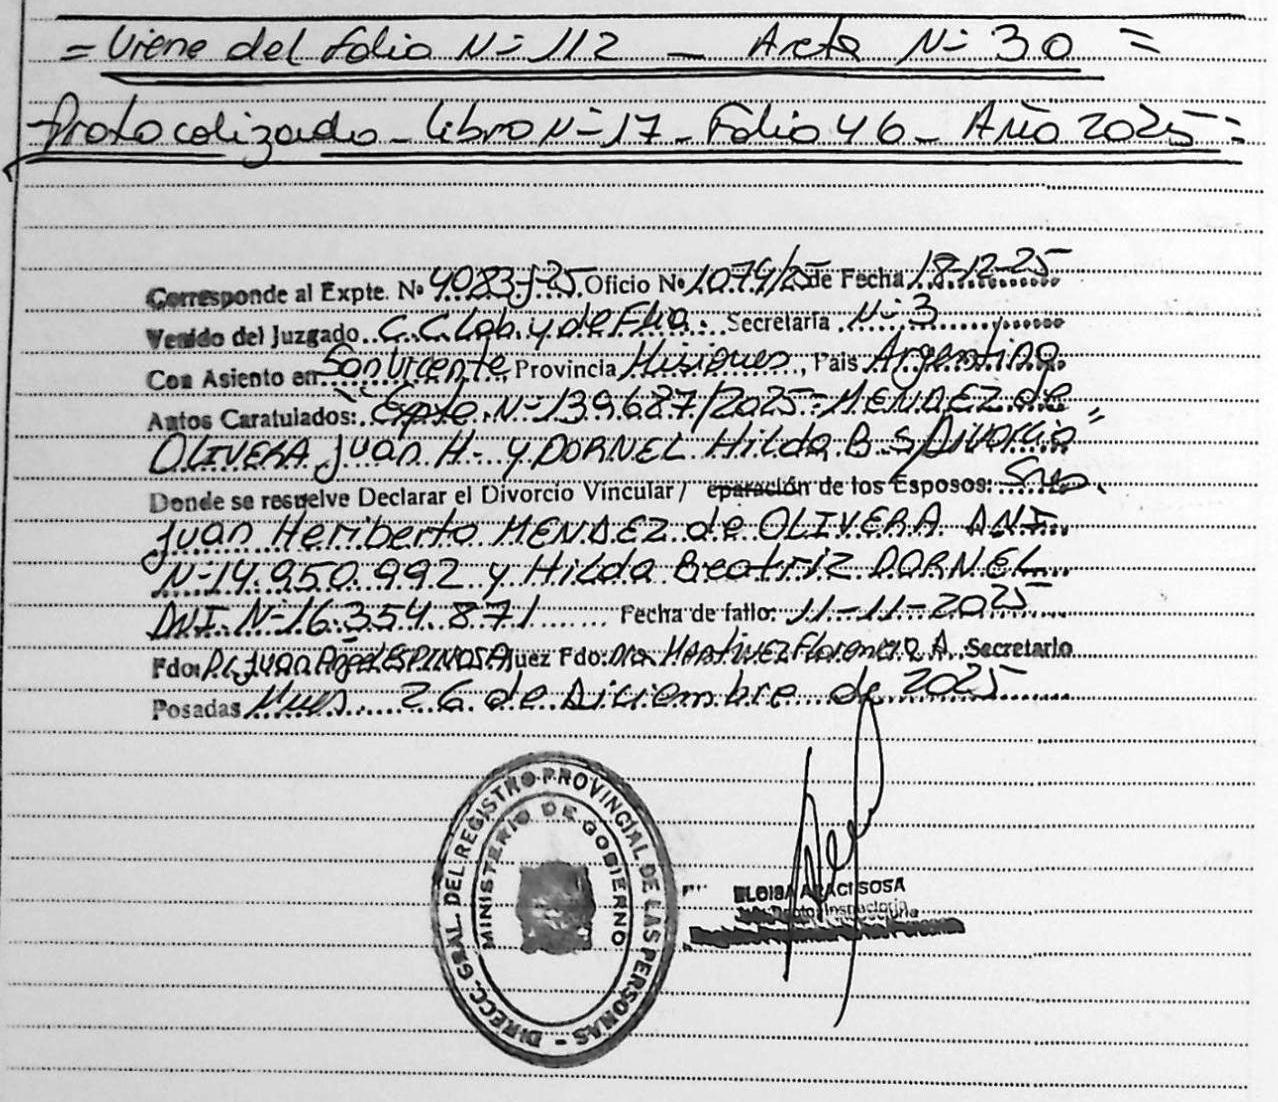 = Viene del folio N= 112 - Acta N= 30 =
Protocolizado - Libro N= 17 - Folio 46 - Año 2025 =
Corresponde al Expte. Nº 4083-J-25 Oficio Nº 1074/25 de Fecha 18-12-25
Venido del Juzgado C.C. Lab. y de Flia. Secretaría N= 3
Con Asiento en San Vicente Provincia Misiones, País Argentina
Autos Caratulados: "Expte. N= 139.687/2025 - MENDEZ de
OLIVERA Juan H. y DORNEL Hilda B. S/Divorcio"
Donde se resuelve Declarar el Divorcio Vincular / eparación de los Esposos: Sres.
Juan Heriberto MENDEZ de OLIVERA DNI.
N=14.950.992 y Hilda Beatriz DORNEL
DNI. N=16.354.871 Fecha de fallo: 11-11-2025
Fdo: Dr. Juan Angel ESPINOSA Juez Fdo: Dra. MARTINEZ Florencia A. Secretario
Posadas Mnes. 26 de Diciembre de 2025
DIRECC. GRAL. DEL REGISTRO PROVINCIAL DE LAS PERSONAS -
MINISTERIO DE GOBIERNO
ELOISA ARACI SOSA